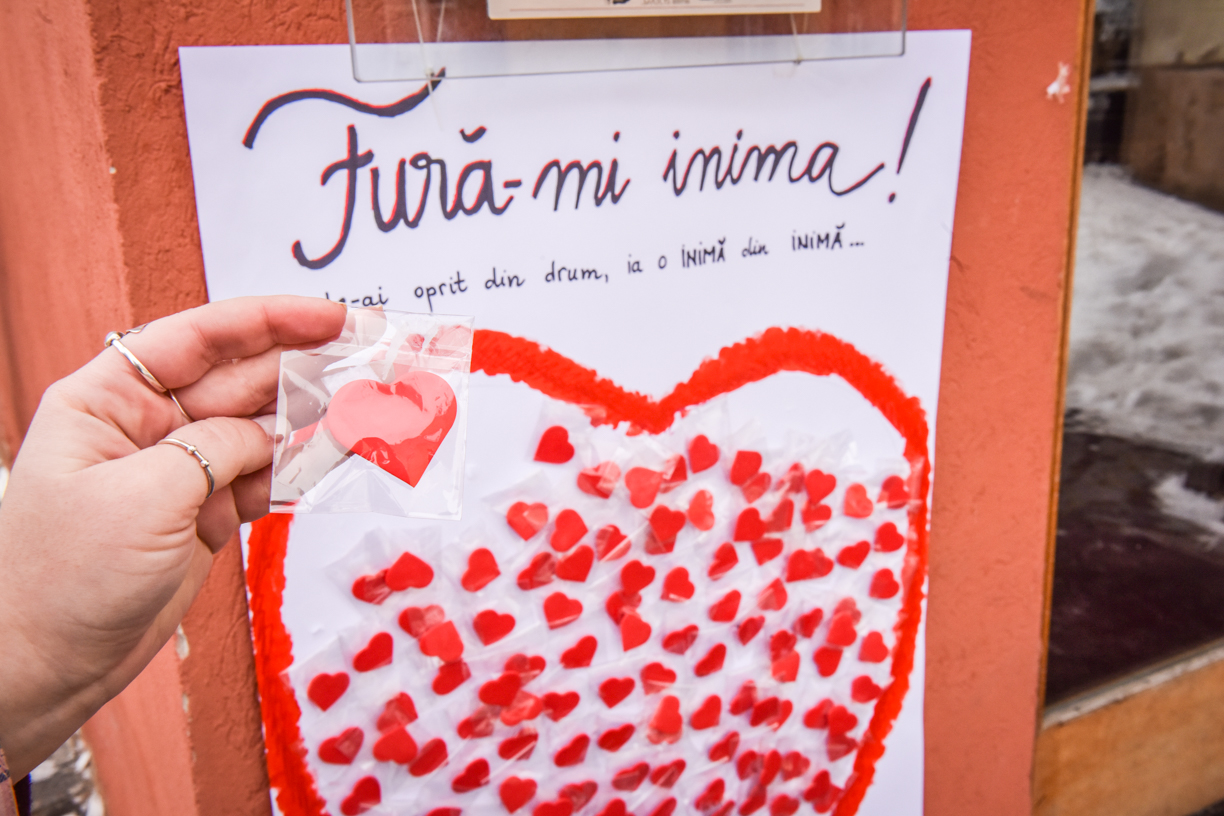 Fură-mi inima!
oprit din drum, ia o INIMĂ din INIMĂ...